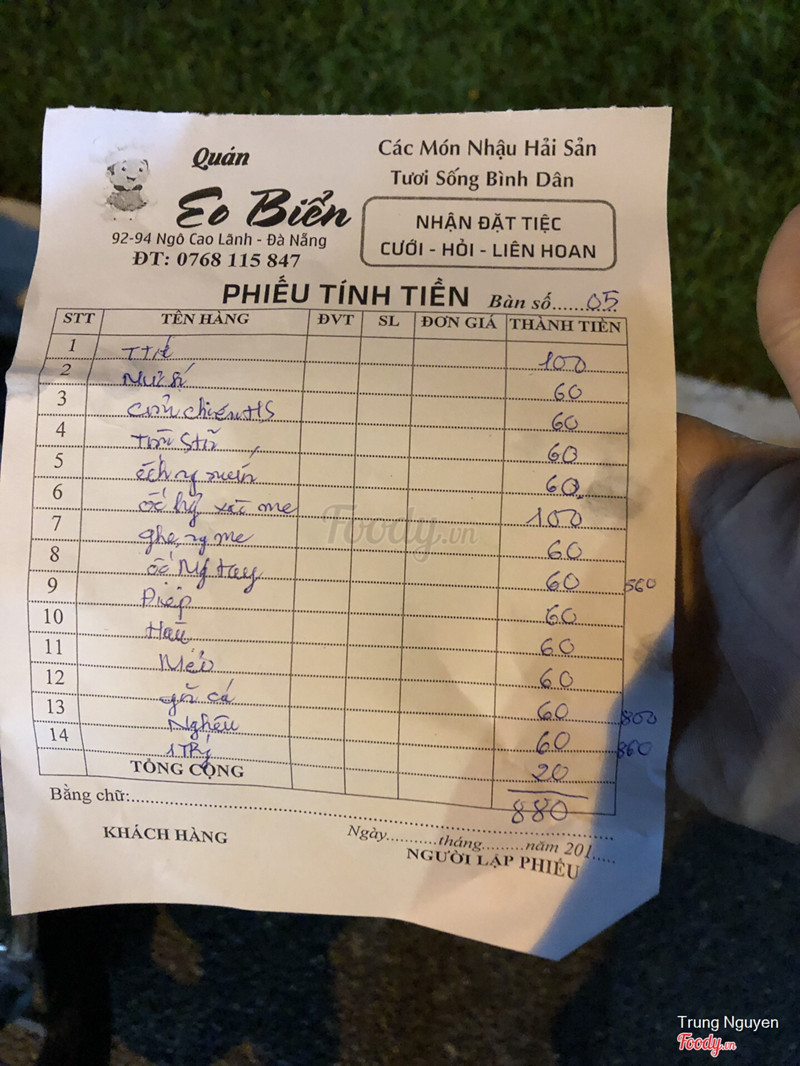 Quán
Eo Biển
92-94 Ngô Cao Lãnh - Đà Nẵng
ĐT: 0768 115 847
Các Món Nhậu Hải Sản
Tươi Sống Bình Dân
NHẬN ĐẶT TIỆC
CƯỚI - HỎI - LIÊN HOAN
PHIẾU TÍNH TIỀN Bàn số......05
STT TÊN HÀNG ĐVT SL ĐƠN GIÁ THÀNH TIỀN
1 100
2 60
3 60
4 60
5 60
6 ốc me 100
7 ghẹ me 60
8 ốc Ng tay 60 560
9 Điệp 60
10 Hàu 60
11 60
12 gỏi cá 60 800
13 Nghêu 60 860
14 20
TỔNG CỘNG 880
Bằng chữ:
Ngày.........tháng.........năm 201.....
KHÁCH HÀNG NGƯỜI LẬP PHIẾU
Foody.vn
Trung Nguyen
Foody.vn